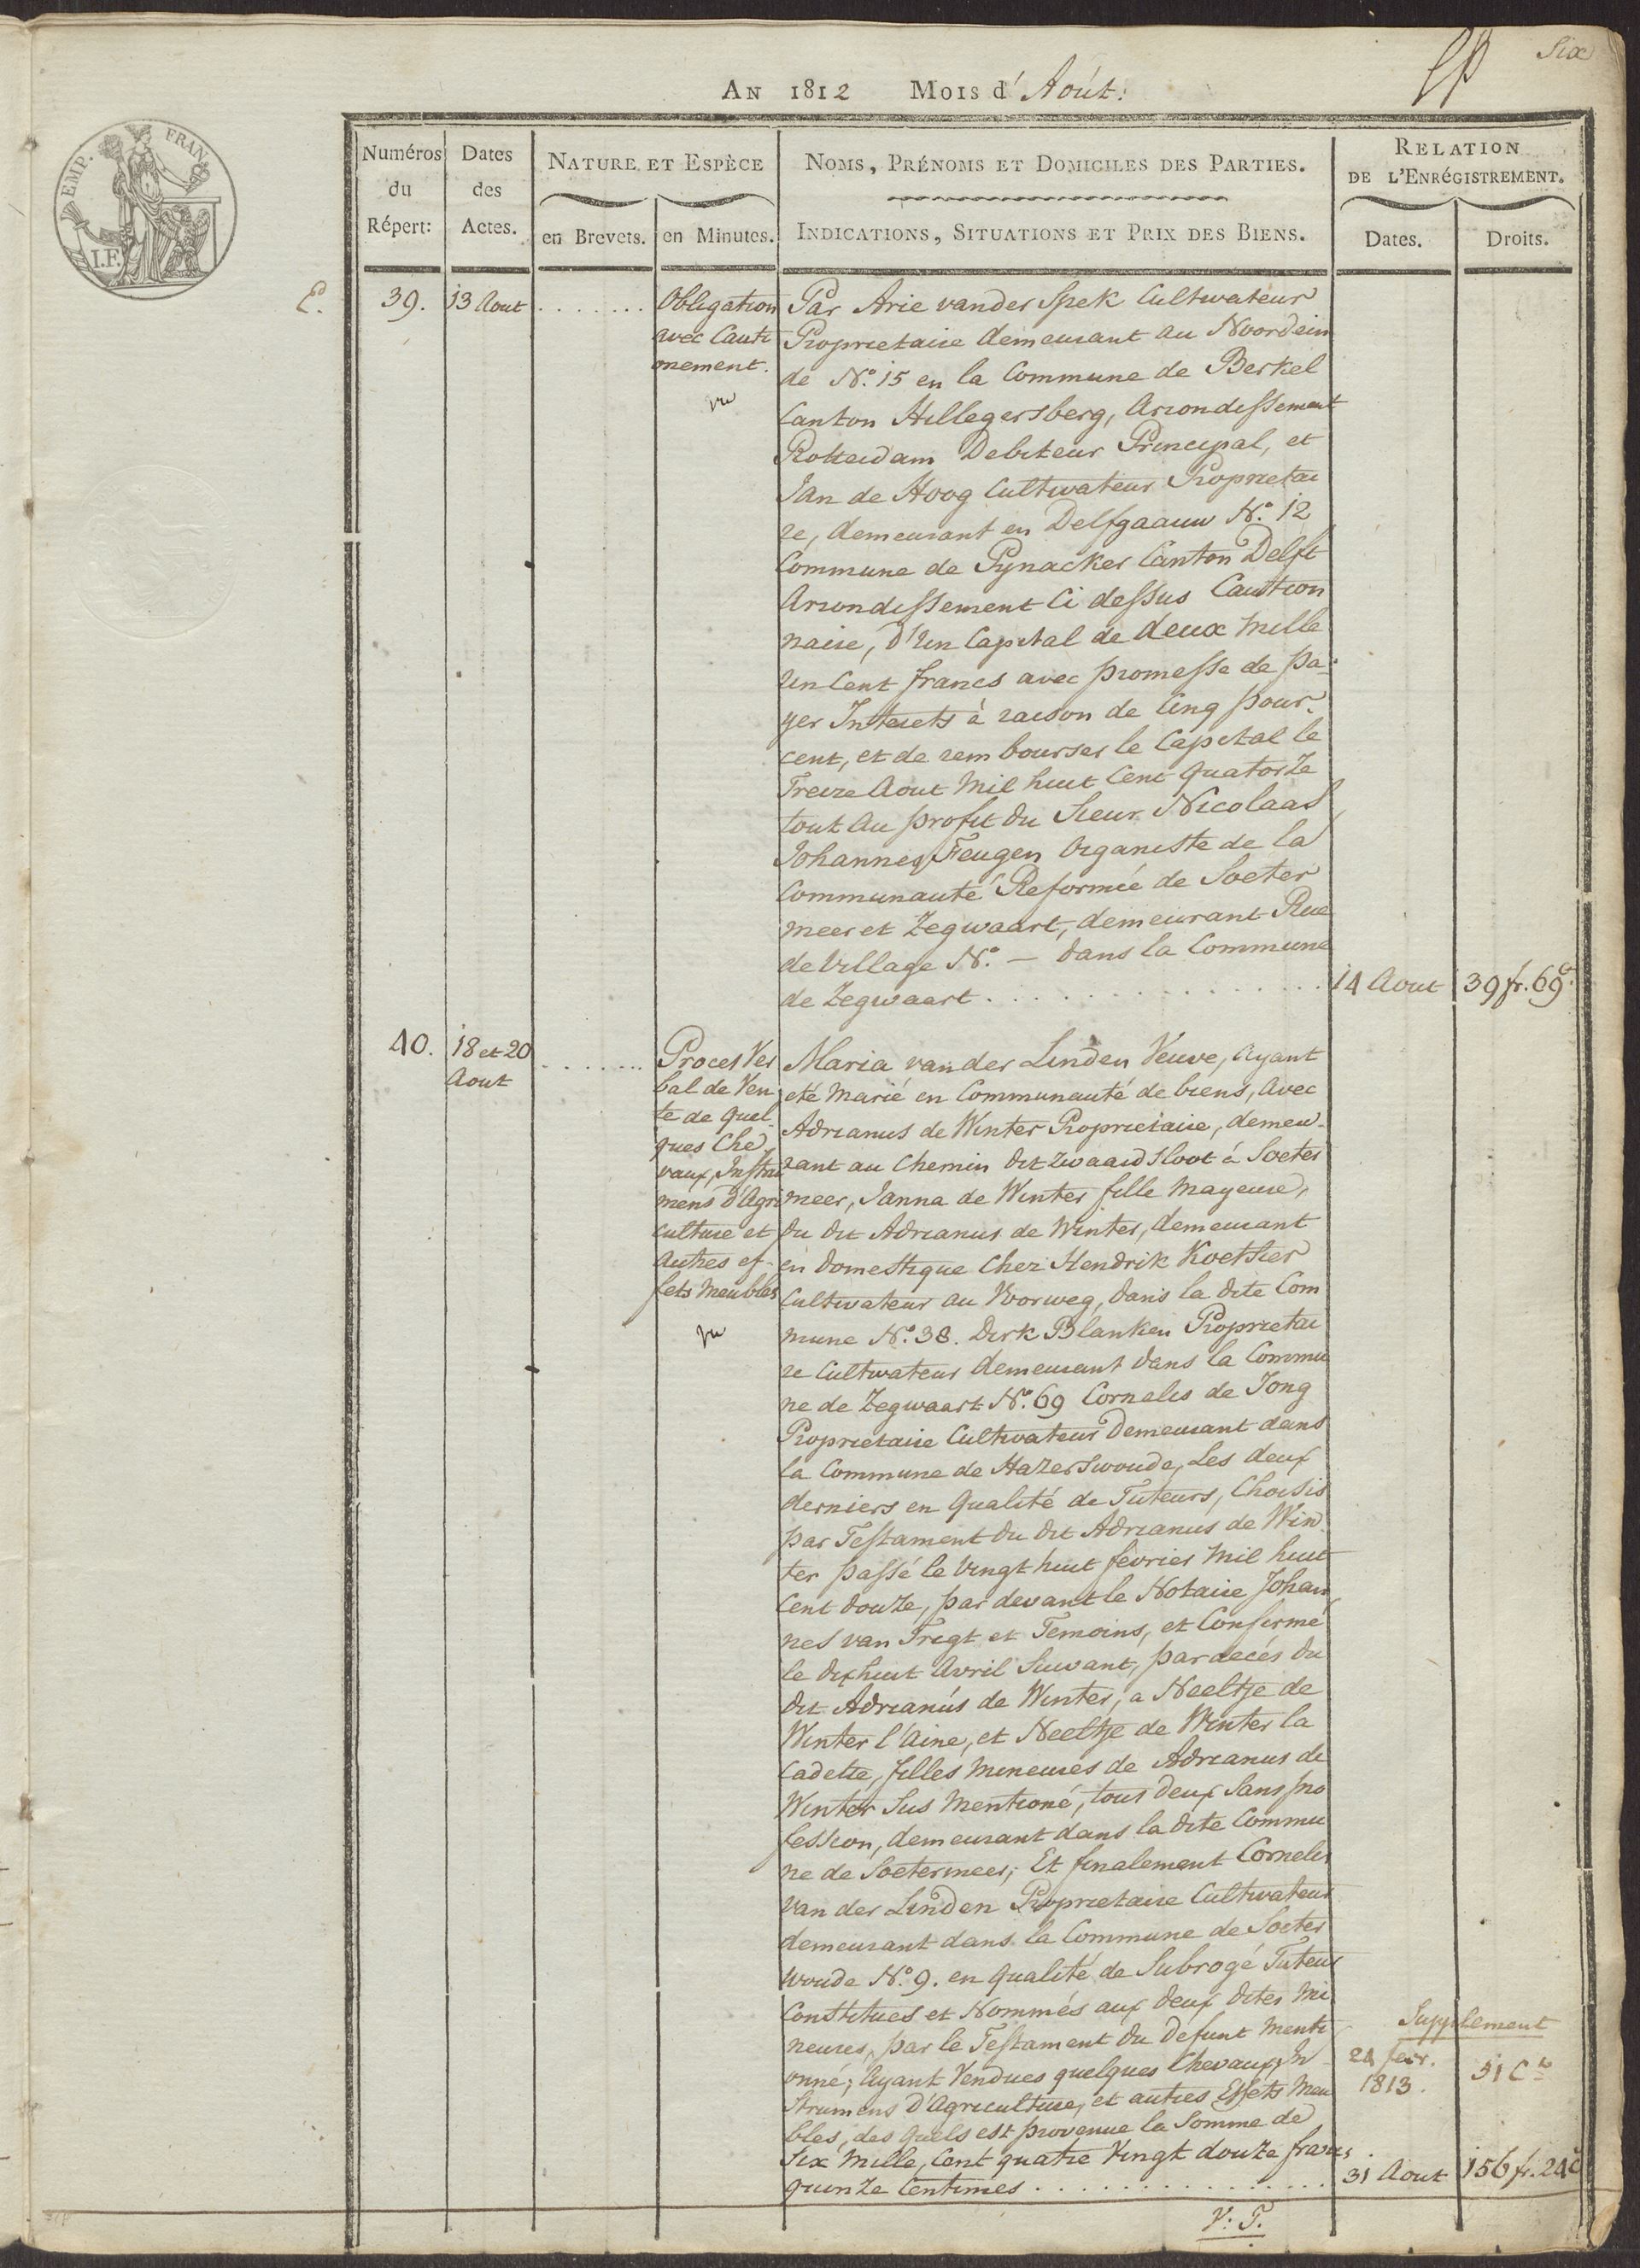 Six
AN 1812 MOIS d'Aoút:
EMP. FRANÇ.
I.F.
Numéros du Répert:
Dates des Actes.
NATURE ET ESPÈCE
en Brevets. en Minutes.
NOMS, PRÉNOMS ET DOMICILES DES PARTIES.
INDICATIONS, SITUATIONS ET PRIX DES BIENS.
RELATION
DE L'ENRÉGISTREMENT.
Dates. Droits.
E. 39. 13 Aout
Obligation
avec Cauti
onement.
Par Arie vander Spek Cultivateur
Proprietaire demeurant au Noordein
de No. 15 en la Commune de Berkel
Canton Hillegersberg, Arrondissement
Rotterdam Debiteur Principal, et
Jan de Hoog Cultivateur Proprietai
re, demeurant en Delfgaauw No. 12
Commune de Pynacker Canton Delft
Arrondissement Ci dessus Caution
naire, d'Un Capital de deux Mille
Un Cent francs avec promesse de pa-
yer Interets à raison de Cinq pour
cent, et de rembourser le Capital le
Treize Aout Mil huit Cent quatorze
tout au profit du Sieur Nicolaas
Johannes Feugen Organiste de la
Communauté Reformée de Soeter
meer et Zegwaart, demeurant Rue
de Village No. — dans la Commune
de Zegwaart . . . . . . . . . . . . . . .
14 Aout 39 fr. 69 c.
40. 18 et 20
Aout
Proces Ver
bal de Ven
te de quel
ques Che
vaux, Instru
mens d'Agri
culture et
Autres ef-
fets Meubles
Maria van der Linden Veuve, Ayant
eté Marié en Communauté de biens, Avec
Adrianus de Winter Proprietaire, demeu-
rant au Chemin dit Zwaardsloot á Soeter
meer, Janna de Winter fille Mayeure,
du dit Adrianus de Winter, demeurant
en domestique Chez Hendrik Koetsier
Cultivateur au Voorweg, dans la dite Com
mune No. 38. Dirk Blanken Proprietai
re Cultivateur demeurant dans la Commu
ne de Zegwaart No. 69 Cornelis de Jong
Proprietaire Cultivateur Demeurant dans
la Commune de Hazerswoude, Les deux
derniers en Qualité de Tuteurs, Choisis
par Testament du dit Adrianus de Win
ter passé le Vingt huit fevrier Mil huit
Cent douze, par devant le Notaire Johan
nes van Trigt et Temoins, et Confirmé
le dixhuit Avril Suivant, par decés du
dit Adrianus de Winter, a Neeltje de
Winter l'Aine, et Neeltje de Winter la
Cadette, filles Mineures de Adrianus de
Winter Sus Mentioné, tous deux Sans pro
fession, demeurant dans la dite Commu
ne de Soetermeer; Et finalement Cornelis
van der Linden Proprietaire Cultivateur
demeurant dans la Commune de Soeter
woude No. 9. en qualité de Subrogé Tuteur
Constitues et Nommés aux deux dites Mi
neures, par le Testament du Defunt Menti
onné; Ayant Vendues quelques Chevaux, In
strumens d'Agriculture, et autres Effets Meu
bles, des quels est provenue la Somme de
Six Mille, Cent quatre Vingt douze francs
quinze Centimes . . . . . . . . . . . . . . .
Supplement
24 fevr.
1813. 51 Cts
31 Aout 156 fr. 24 c
V. T.